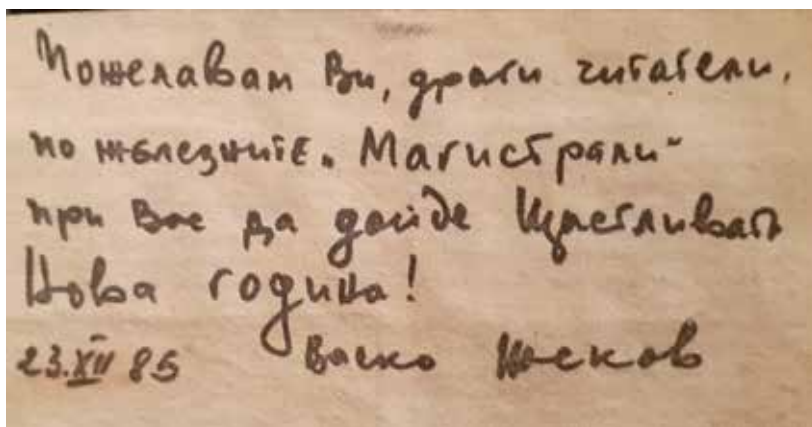 Пожелавам Ви, драги читатели,
по железните „Магистрали“
при Вас да дойде Щастливата
Нова година!
23.XII 85 Васко